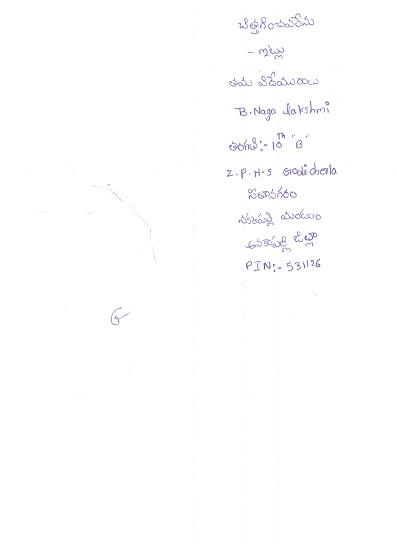 చిత్తగించవలెను
- ఇట్లు
తమ విధేయురాలు
B. Naga lakshmi
తరగతి:- 10th "B"
Z.P.H.S Godicherla
సీతానగరం
నక్కపల్లి మండలం
అనకాపల్లి జిల్లా
PIN:- 531126